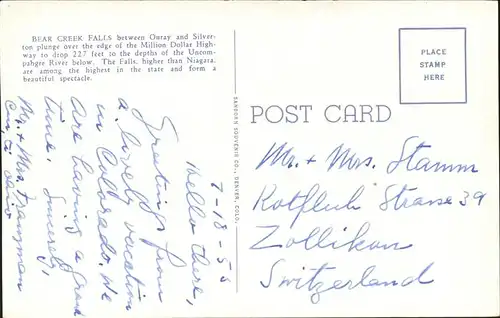 BEAR CREEK FALLS between Ouray and Silver-
ton plunge over the edge of the Million Dollar High-
way to drop 227 feet to the depths of the Uncom-
pahgre River below. The Falls, higher than Niagara,
are among the highest in the state and form a
beautiful spectacle.
7-18-55
Hello there,
Greetings from
a lovely vacation
in Colorado. We
are having a grand
time. Sincerely,
Mr. + Mrs.
SANBORN SOUVENIR CO., DENVER, COLO.
PLACE
STAMP
HERE
POST CARD
Mr. + Mrs. Stamm
Rotfluh Strasse 39
Zollikon
Switzerland